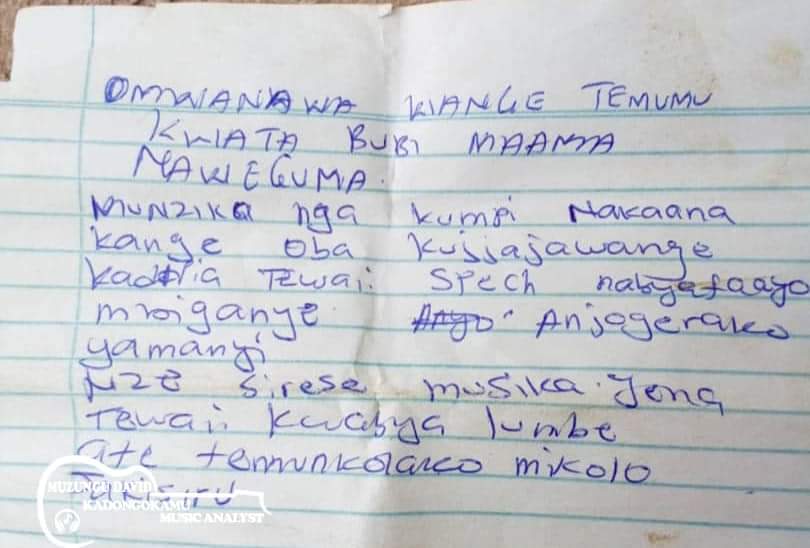 OMWANAWA KIANGE TEMUMU
KWATA BUBI MAAMA
NAWEGUMA.
MUNZIKA nga kumpi Nakaana
kange oba kujjajawange
kadolia Tewai. Spech nabyafaayo
mbiganye. Anjogerako
yamanyi
NZE sirese musika. Jena
Tewaii kwabya lumbe
ate temunkolako mikolo
MUZUNGU DAVID
KADONGOKAMU
MUSIC ANALYST